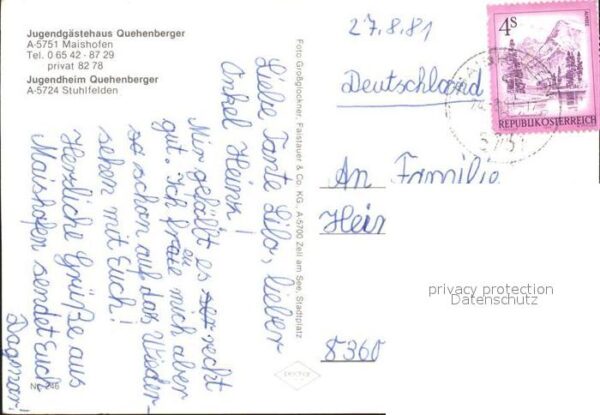 Jugendgästehaus Quehenberger
A-5751 Maishofen
Tel. 0 65 42 - 87 29
privat 82 78
Jugendheim Quehenberger
A-5724 Stuhlfelden
Liebe Tante Lilo, lieber
Onkel Heink!
Mir gefällt es sehr recht
gut. Ich freue mich aber
so schon auf das Wieder-
sehen mit Euch!
Herzliche Grüße aus
Maishofen sendet Euch
Dagmar!
Nr. 246
Foto Großglockner, Faistauer & Co. KG., A-5700 Zell am See, Stadtplatz
27.8.81
Deutschland
4S
REPUBLIK ÖSTERREICH
5751
An Familie
Hein
8360
privacy protection
Datenschutz